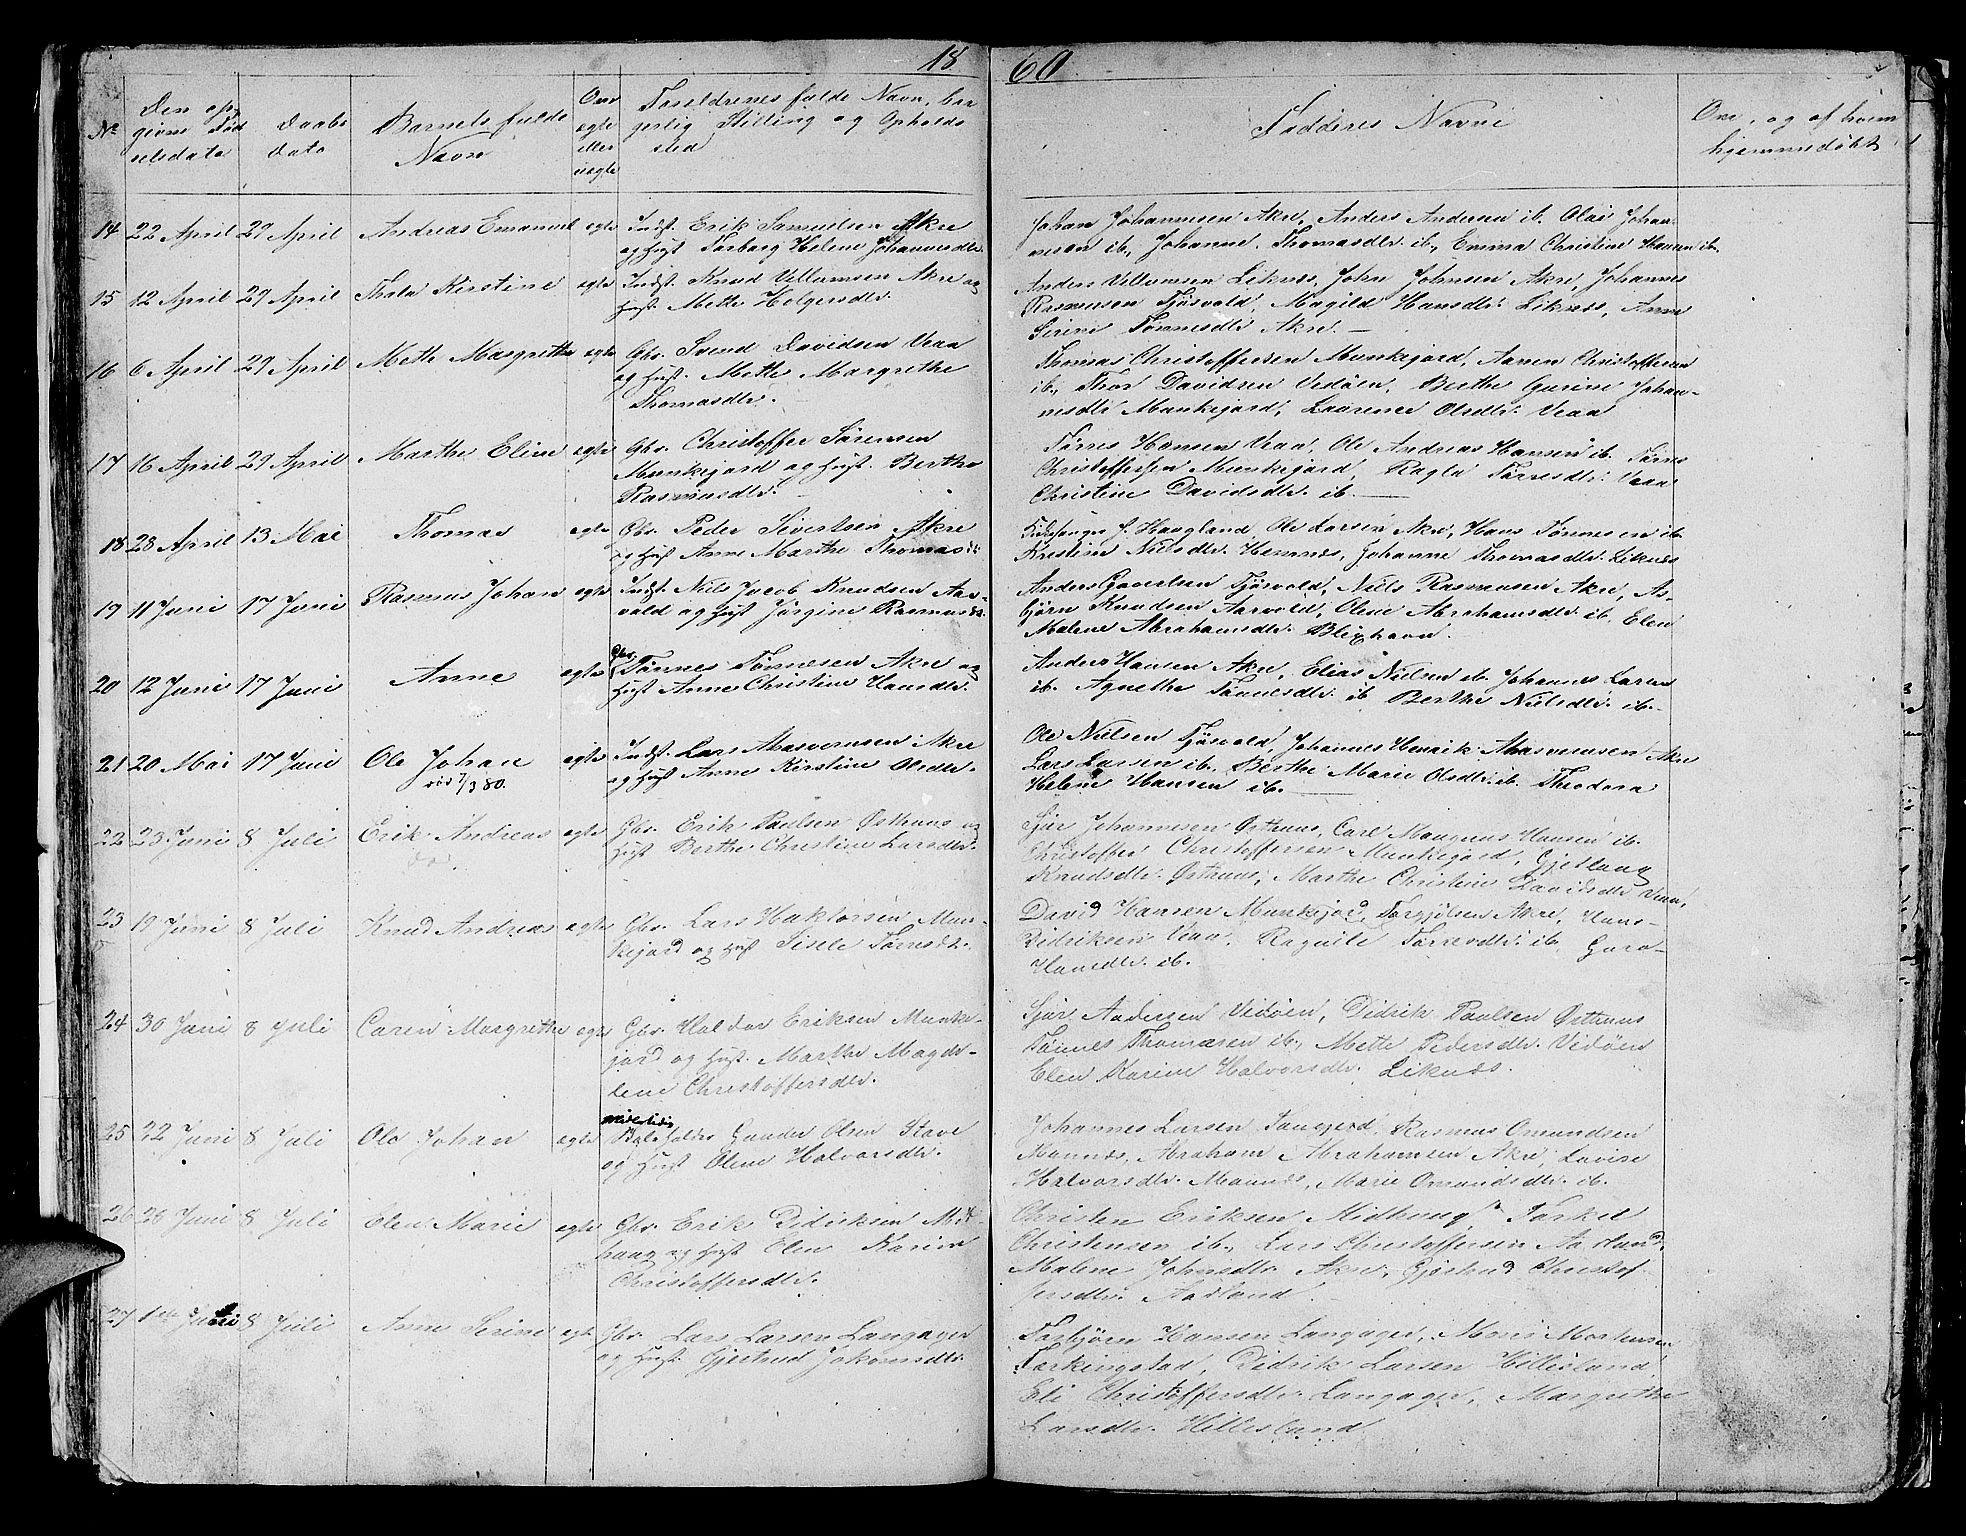 18 60
No
Den op
givne Fød
selsdato
Daabs
dato
Barnets fulde
Navn
Om
ægte
eller
uægte
Forældrenes fulde Navn, bor
gerlig Stilling og Opholds
sted
Fadderes Navne
Om, og af hvem
hjemmedøbt
14 22 April 29 April Andreas Emanuel ægte Indst. Erik Samuelsen Akre
og Hust. Torborg Helene Johannesdtr.
Johan Johannesen Akre, Anders Andersen ib. Olai Johan-
nesen ib., Johanne Thomasdtr. ib., Emma Christine Hansen ib.
15 12 April 29 April Thala Kirstine ægte Indst. Knud Villumsen Akre og
Hust. Mette Holgersdtr.
Anders Villumsen Liknes, John Johnsen Akre, Johannes
Rasmusen Tjøsvold, Magild Hansdtr. Liknes, Anne
Serine Tønnesdtr Akre. —
16 6 April 29 April Mette Margrethe ægte Gbr. Svend Davidsen Veaa
og Hust. Mette Margrethe
Thomasdtr.
Thomas Christoffersen Munkejord, Aanen Christoffersen
ib., Thor Davidsen Vedøen, Berthe Gurine Johan-
nesdtr Munkejord, Laurence Olsdtr. Veaa
17 16 April 29 April Marthe Eline ægte Gbr. Christoffer Sørensen
Munkejord og Hust. Berthe
Rasmusdtr.
Tørres Hansen Veaa, Ole Andreas Hansen ib. Tørres
Christoffersen Munkejord, Ragla Tørresdtr. Veaa
Christine Davidsdtr. ib. —
18 28 April 13 Mai Thomas ægte Gbr. Peder Sivertsen Akre
og Hust. Anne Marthe Thomasdtr.
Kirkesanger J. Haugland, Ole Larsen Akre, Hans Tønnesen ib.
Kristine Nielsdtr. Hemnes, Johanne Thomasdtr. Liknes
19 11 Juni 17 Juni Rasmus Johan ægte Indst. Niels Jacob Knudsen Aar-
vold og Hust Jørgine Rasmusdtr.
Anders Govertsen Tjøsvold, Niels Rasmusen Akre, As-
bjørn Knudsen Aarvold, Olene Abrahamsdtr. ib, Elen
Malene Abrahamsdtr. Bleghavn.
20 12 Juni 17 Juni Anne ægte Gbr. Tønnes Tønnesen Akre og
Hust Anne Christine Hansdtr.
Anders Hansen Akre, Elias Nielsen ib. Johannes Larsen
ib. Agnethe Tønnesdtr. ib Berthe Nielsdtr. ib.
21 20 Mai 17 Juni Ole Johan ægte Indst. Lars Aasverusen Akre
7/3 80.
og Hust Anne Kirstine Olsdtr.
Ole Nielsen Tjøsvold, Johannes Henrik Aasverusen Akre
Lars Larsen ib. Berthe Marie Olsdtr. ib. Theodora
Helene Hansen ib. —
22 23 Juni 8 Juli Erik Andreas ægte Gbr. Erik Paulsen Østhuus og
død
Hust Berthe Christine Larsdtr.
Sjur Johannesen Østhuus, Carl Magnus Hansen ib.
Christoffer Christoffersen Munkejord, Gjetlaug
Knudsdtr. Østhuus, Marthe Christine Davidsdtr Veaa,
23 19 Juni 8 Juli Knud Andreas ægte Gbr. Lars Haktorsen Mun-
kejord og Hust Sisele Tørresdtr.
David Hansen Munkejord, Torgjølsen Akre, Hans
Didriksen Veaa, Ragnile Tørresdtr. ib. Guro
Hansdtr. ib.
24 30 Juni 8 Juli Caren Margrethe ægte Gbr. Haldor Eriksen Munke-
jord og Hust. Marthe Magde-
lene Christoffersdtr.
Sjur Andersen Vedøen, Didrik Paulsen Østhuus
Tønnes Thomasen ib., Mette Pedersdtr. Vedøen
Elen Karine Halvorsdtr. Liknes.
25 22 Juni 8 Juli Ole Johan ægte midlertidig
Gunder Olsen Stave
og Hust Olene Halvorsdtr.
Johannes Larsen Sauejord, Rasmus Omundsen
Mannes, Abraham Abrahamsen Akre, Lovise
Halvorsdtr. Mannes, Marie Omundsdtr. ib.
26 26 Juni 8 Juli Elen Marie ægte Gbr. Erik Didriksen Mid-
haug og Hust Elen Karine
Christoffersdtr.
Christen Eriksen Midhaug, Torkel
Christensen ib., Lars Christoffersen Aadland,
Malene Johnsdtr. Akre, Gjertrud Christof-
fersdtr. Aadland.
27 1ste Juli 8 Juli Anne Serine ægte Gbr. Lars Larsen Langager
og Hust. Gjertrud Jakobsdtr.
Torbjørn Hansen Langager, Mons Mortensen
Torkingstad, Didrik Larsen Hillesland
Eli Christoffersdtr. Langager, Margrethe
Larsdtr. Hillesland